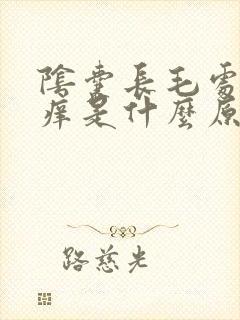 陰囊長毛處
痒是什麼原
路慈光